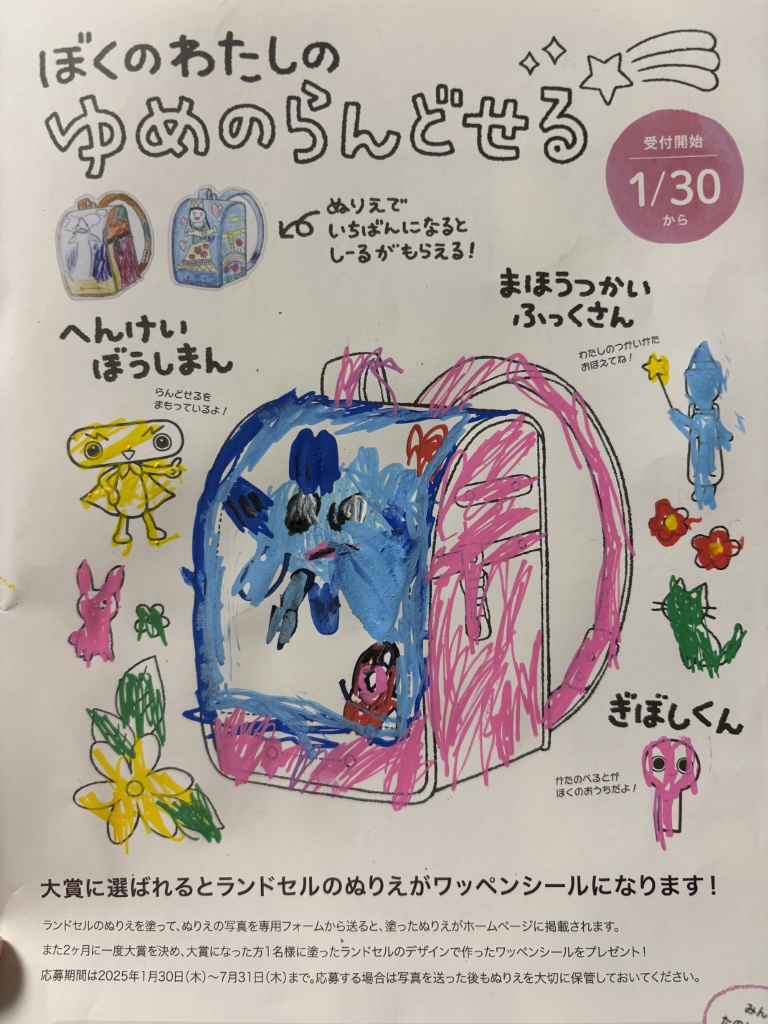 ぼくのわたしの
ゆめのらんどせる
受付開始
1/30
から
ぬりえで
いちばんになると
しーるがもらえる！
まほうつかい
ふっくさん
わたしのつかいかた
おぼえてね！
へんけい
ぼうしまん
らんどせるを
まもっているよ！
ぎぼしくん
かたのべるとが
ぼくのおうちだよ！
大賞に選ばれるとランドセルのぬりえがワッペンシールになります！
ランドセルのぬりえを塗って、ぬりえの写真を専用フォームから送ると、塗ったぬりえがホームページに掲載されます。
また2ヶ月に一度大賞を決め、大賞になった方1名様に塗ったランドセルのデザインで作ったワッペンシールをプレゼント！
応募期間は2025年1月30日(木)～7月31日(木)まで。応募する場合は写真を送った後もぬりえを大切に保管しておいてください。
みん